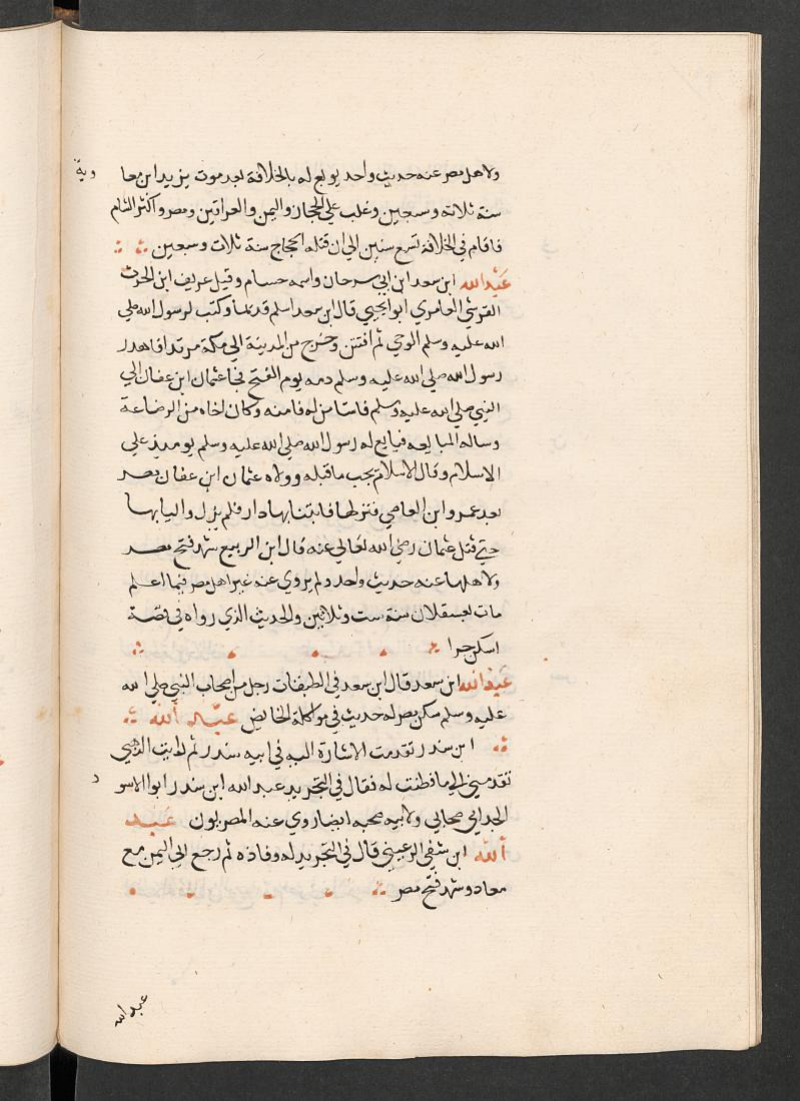 ولاهل مصر عنه حديث واحد بويع له بالخلافة بعد موت يزيد ابن معا
وية
سنة ثلاثة وسبعين وغلب علي الحجاز واليمن والعراقين ومصر واكثر الشام
فاقام في الخلافة تسع سنين الي ان قتله الحجاج سنة ثلاث وسبعين
عبد الله ابن سعد ابن ابي سرحان واسمه حسام وقيل عريف ابن الحرث
القرشي العامري ابو يحيي قال ابن سعد اسلم قديما وكتب لرسول الله صلي
الله عليه وسلم الوحي ثم افتتن وخرج من المدينة الي مكة مرتدا فاهدر
رسول الله صلي الله عليه وسلم دمه يوم الفتح فجا عثمان ابن عفان الي
النبي صلي الله عليه وسلم فاستامن له فامنه وكان اخاه من الرضاعة
وساله المبايعه فبايع له رسول الله صلي الله عليه وسلم يومئذ علي
الاسلام وقال الاسلام يجب ماقبله وولاه عثمان ابن عفان مصر
بعد عمرو ابن العاصي فنزلها فابتنا بها دار فلم يزل واليا بها
حتي قتل عثمان رضي الله تعالي عنه قال ابن الربيع شهد فتح مصر
ولاهلها عنه حديث واحد ولم يروي عنه غير اهل مصر فيما اعلم
مات بعسقلان سنة ست وثلاثين والحديث الذي رواه في قصة
اسكن حرا
عبد الله ابن سعد قال ابن سعد في الطبقات رجل من اصحاب النبي صلي الله
عليه وسلم سكن مصر له حديث في مواكلة الحايض عبد الله
ابن سندر تقدمت الاشارة اليه في ابيه سندر ثم رايت الذهبي
تقدمني الي ما فطنت له فقال في التجريد عبد الله ابن سندر ابو الاسو
د
الجذامي صحابي ولابيه صحبه ايضا روي عنه المصريون عبد
الله ابن شفي الرعيني قال في التجريد له وفاده ثم رجع الي اليمن مع
معاد وشهد فتح مصر
عبد الله